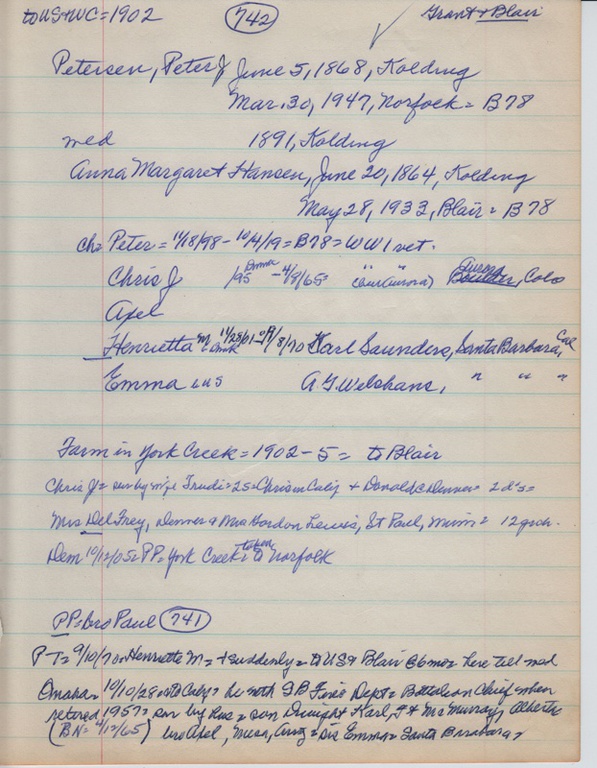 to US+WC=1902 742 Grant + Blair
Petersen, Peter J June 5, 1868, Kolding
Mar. 30, 1947, Norfolk = B78
med 1891, Kolding
Anna Margaret Hansen, June 20, 1864, Kolding
May 28, 1933, Blair = B78
ch= Peter = 11/18/98 - 10/4/19 = B78 = WW1 vet.
Chris J /95 - 4/8/65= (bur Aurora) Boulder, Aurora, Colo
Axel
Henrietta M 11/28/01 Karl Saunders, Santa Barbara, Cal
Emma A.G. Welshans, " " "
Farm in York Creek = 1902-5 = to Blair
Chris J = sur by wife Trudi = 2S = Chris in Calif + Donald Denver = 2 d's =
Mrs Del Frey, Denver + Mrs Gordon Lewis, St Paul, Minn = 12 gch.
Dem 10/12/05 = PP = York Creek = taken to Norfolk
PP = bro Paul 741
P-T = 9/10/70 = Henrietta M = + suddenly = to US + Blair @ 6 mo = here till med
Omaha = 10/10/28 = to Calif = he with SB Fire Dept = Battalion Chief when
retired 1957 = sur by hus = son Dwight Karl, Mc Murray, Alberta
(BN = 4/12/65) bro Axel, Mesa, Ariz = sis Emma = Santa Barbara =